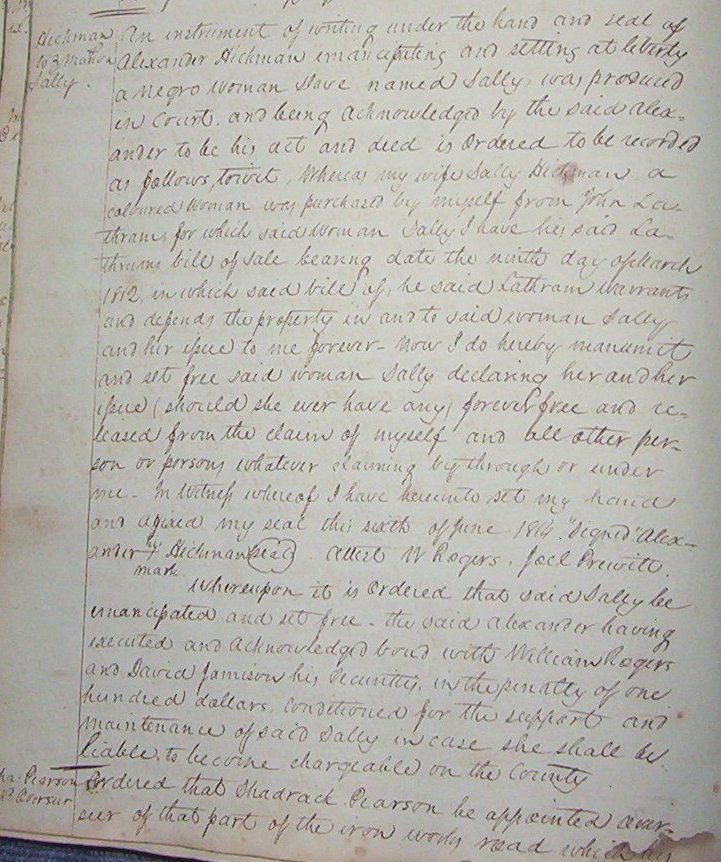 Hickman
to } Mano
Sally.
An instrument of writing under the hand and seal of
Alexander Hickman emancipating and setting at liberty
a negro woman slave named Sally, was produced
in Court. and being acknowledged by the said Alex=
ander to be his act and deed is ordered to be recorded
as follows, towit, Whereas my wife Sally Hickman a
coloured woman was purchased by myself from John La=
thram, for which said woman Sally I have his said La=
thrams bill of sale bearing date the ninth day of March
1812, in which said bill of, he said Lathram warrants
and defends the property in and to said woman Sally
and her issue to me forever - Now I do hereby manumit
and set free said woman Sally declaring her and her
issue (should she ever have any) forever free and re=
leased from the claim of myself and all other per=
son or persons whatever claiming by through or under
me - In Witness whereof I have hereunto set my hand
and afixed my seal this sixth of June 1814. "Signed" Alex=
ander + Hickman seal attest W Rogers. Joel Prewitt.
mark
Whereupon it is ordered that said Sally be
emancipated and set free - the said Alexander having
executed and acknowledged bond with William Rogers
and David Jamison his securities, in the penalty of one
hundred dollars, conditioned for the support and
maintenance of said Sally in case she shall be
liable, to become chargeable on the County
Sha. Pearson
Overseer
Ordered that Shadrack Pearson be appointed over=
seer of that part of the iron works road which